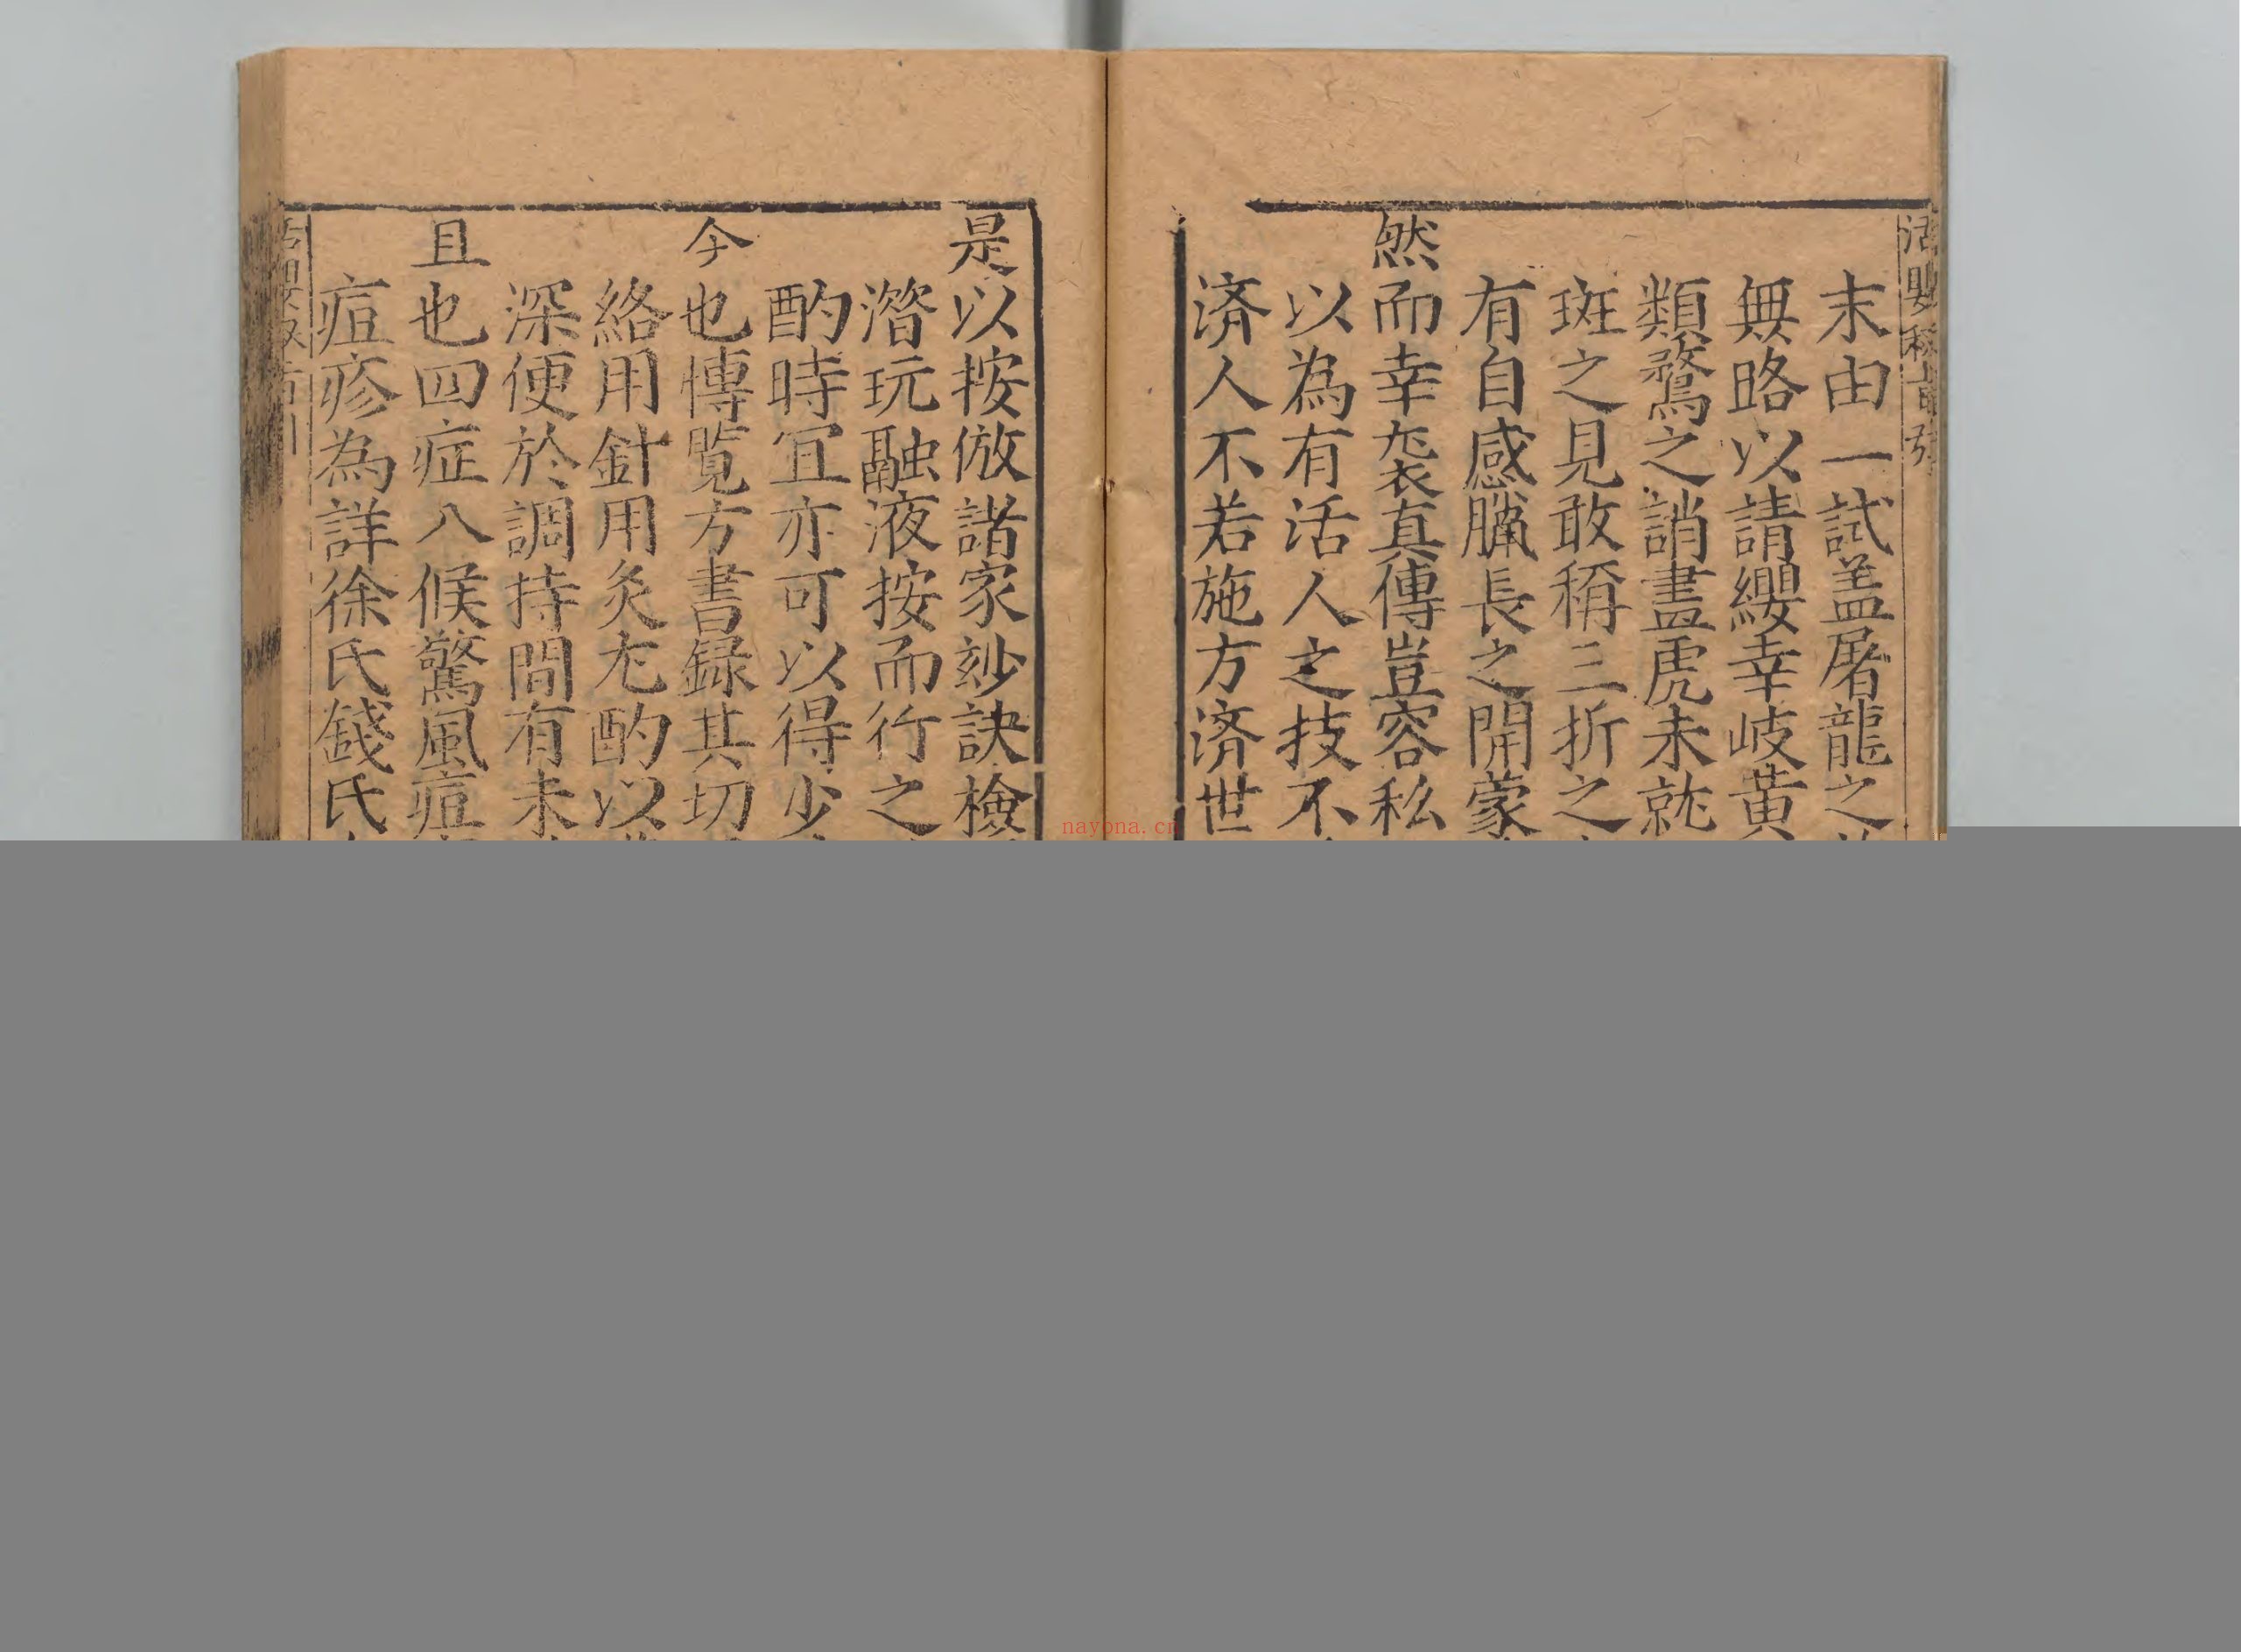 末由一試盖屠龍之
無路以請纓幸岐黄
類鶩之誚畫虎未就
斑之見敢稱三折之
有自感臓長之開蒙
然而幸袭真傳豈容私
以為有活人之技不
済人不若施方済世
是以按倣諸家玅訣檢
濳玩融液按而行之
酌時宜亦可以得少
今也慱覧方書録其切
絡用針用灸尤酌以
深便於調持間有未
且也四症八候驚風痘
痘疹為詳徐氏錢氏
nayona.cn